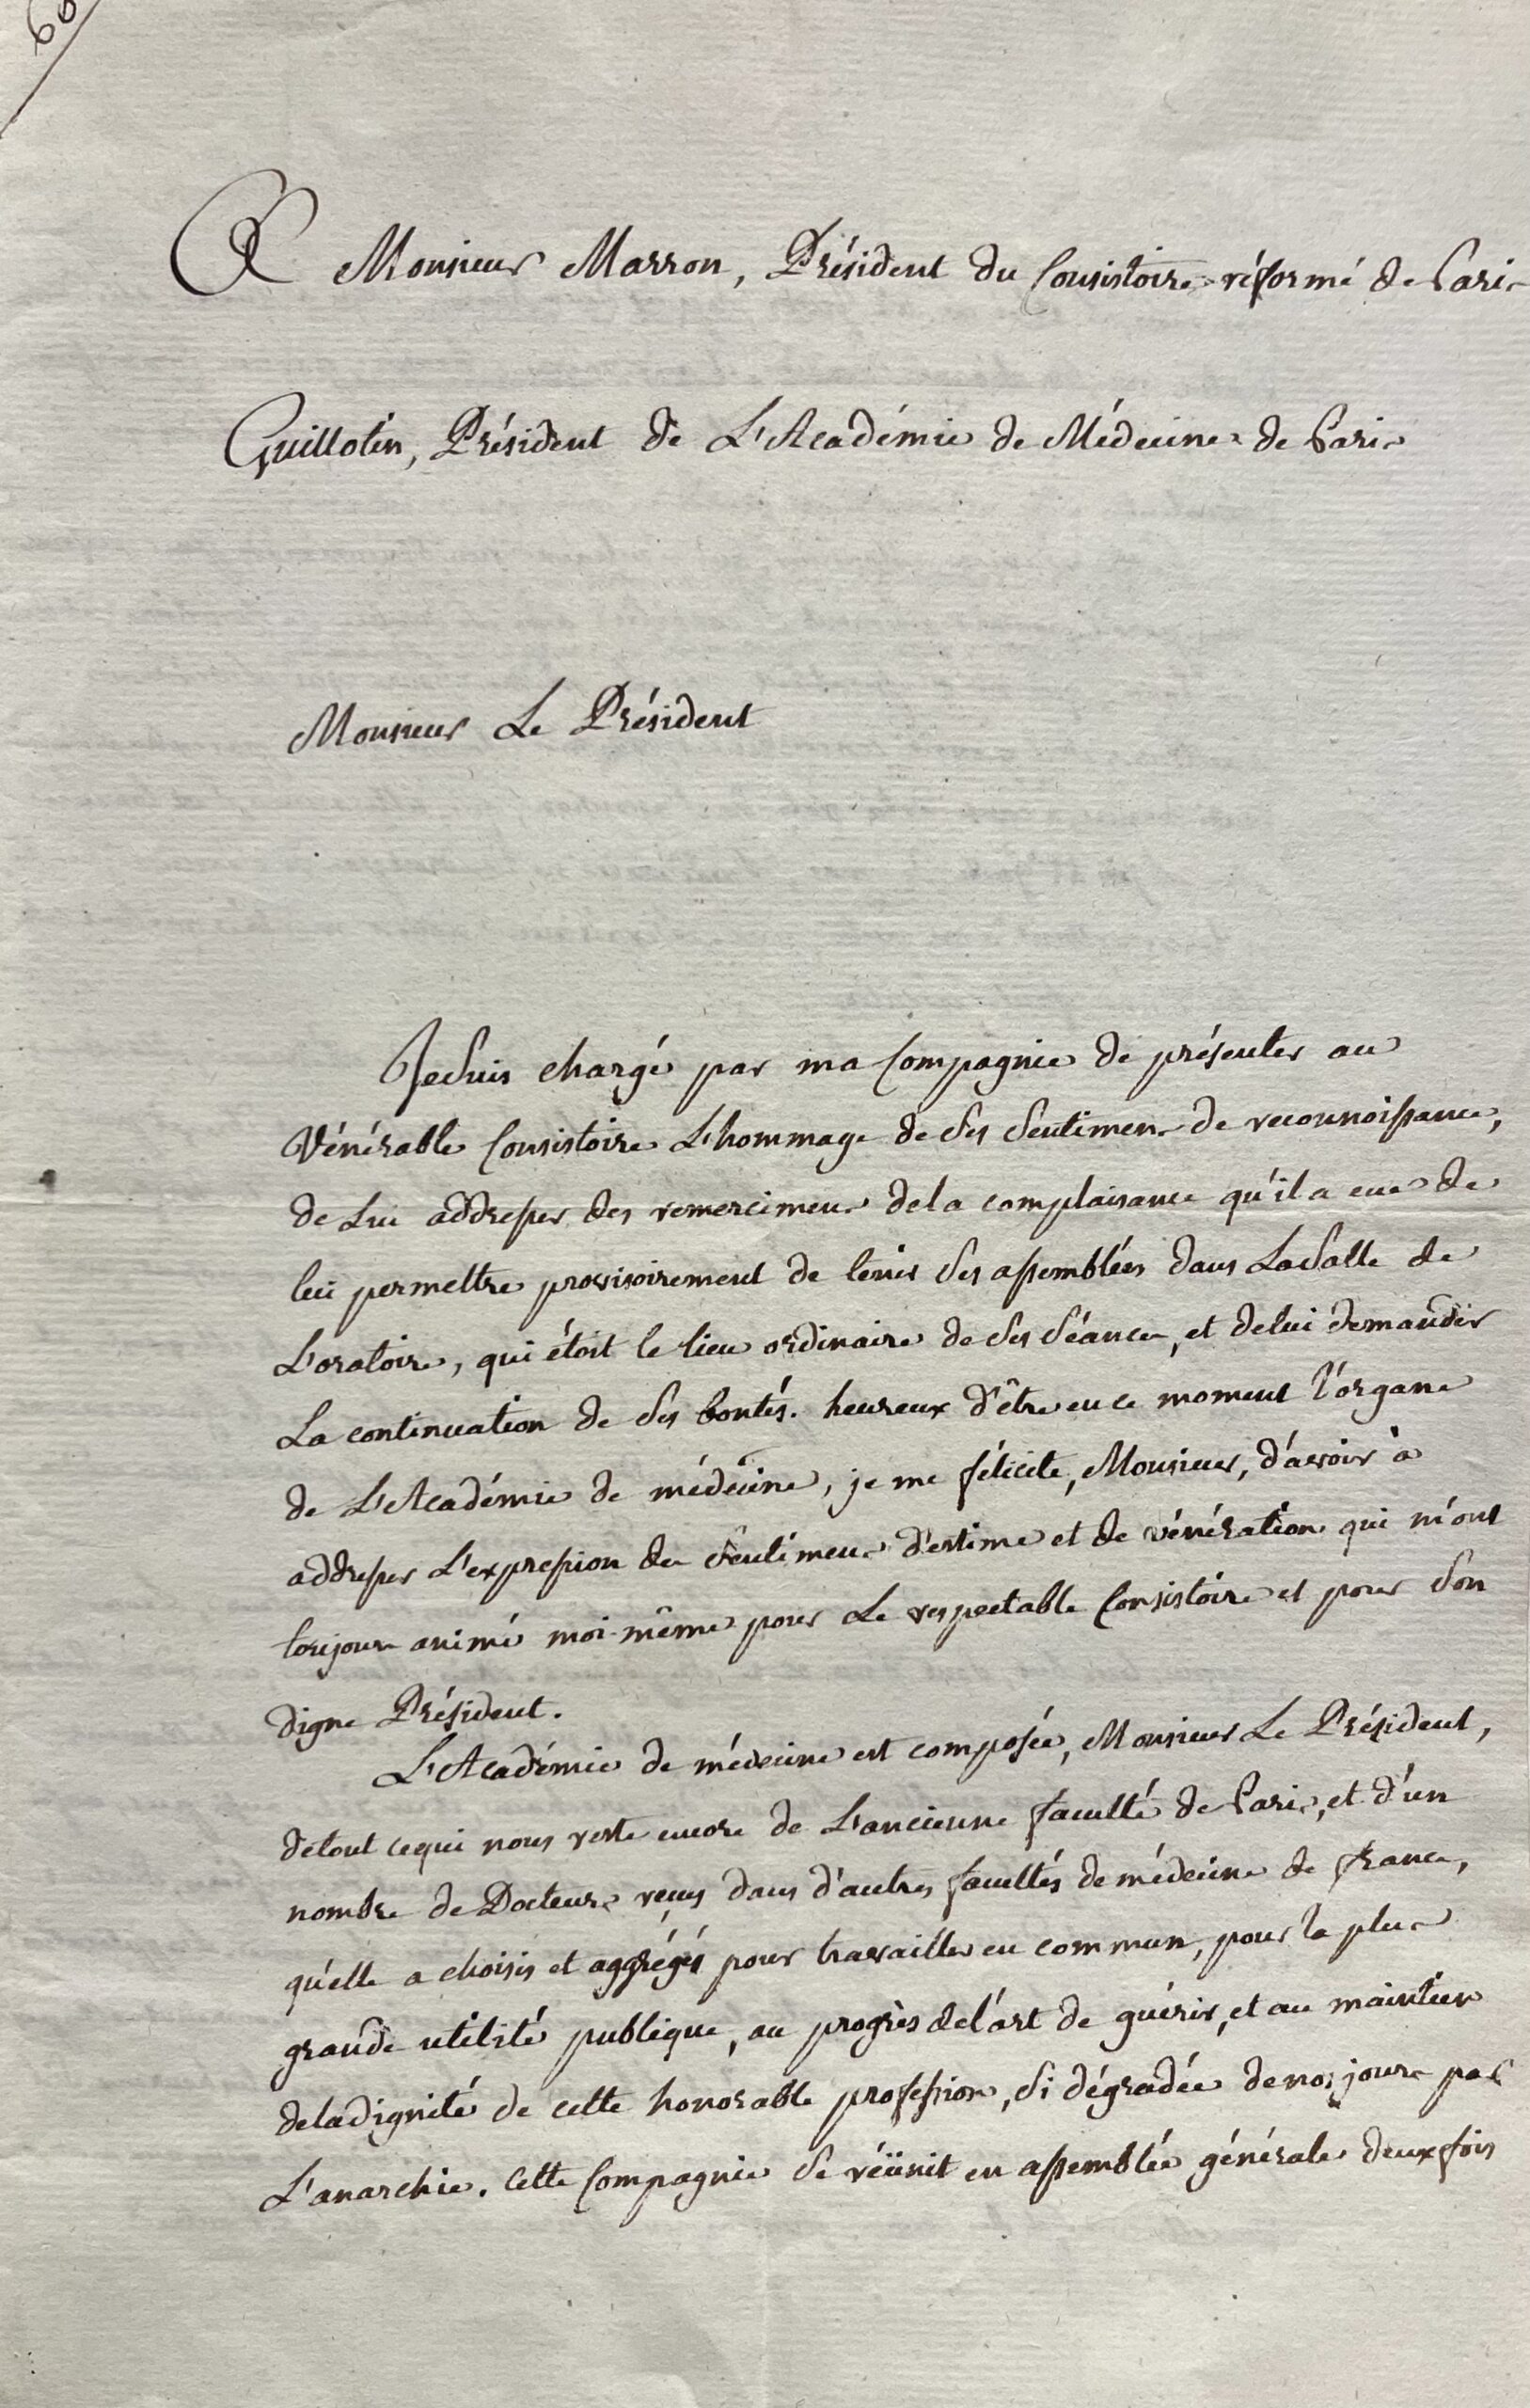 60
A Monsieur Marron, Président du Consistoire réformé de Paris
Guillotin, Président de L'Académie de Médecine de Paris
Monsieur Le Président
Je suis chargé par ma Compagnie de présenter au
Vénérable Consistoire L'hommage de ses sentimens de reconnoissance,
de Lui addresser des remercimens de la complaisance qu'il a eue de
lui permettre provisoirement de tenir ses assemblées dans La Salle de
L'oratoire, qui étoit le lieu ordinaire de ses séances, et de lui demander
La continuation de ses bontés. heureux d'être en ce moment l'organe
de L'Académie de médecine, je me félicite, Monsieur, d'avoir à
addresser L'expression des sentimens d'estime et de vénération qui m'ont
toujours animé moi-même pour Le respectable Consistoire et pour son
digne Président.
L'Académie de médecine est composée, Monsieur Le Président,
de tout ce qui nous reste encore de L'ancienne faculté de Paris, et d'un
nombre de Docteurs reçus dans d'autres facultés de médecine de france,
qu'elle a choisis et aggrégés pour travailler en commun, pour la plus
grande utilité publique, au progrès de l'art de guérir, et au maintien
de la dignité de cette honorable profession, si dégradée de nos jours par
L'anarchie. Cette Compagnie se réünit en assemblée générale deux fois